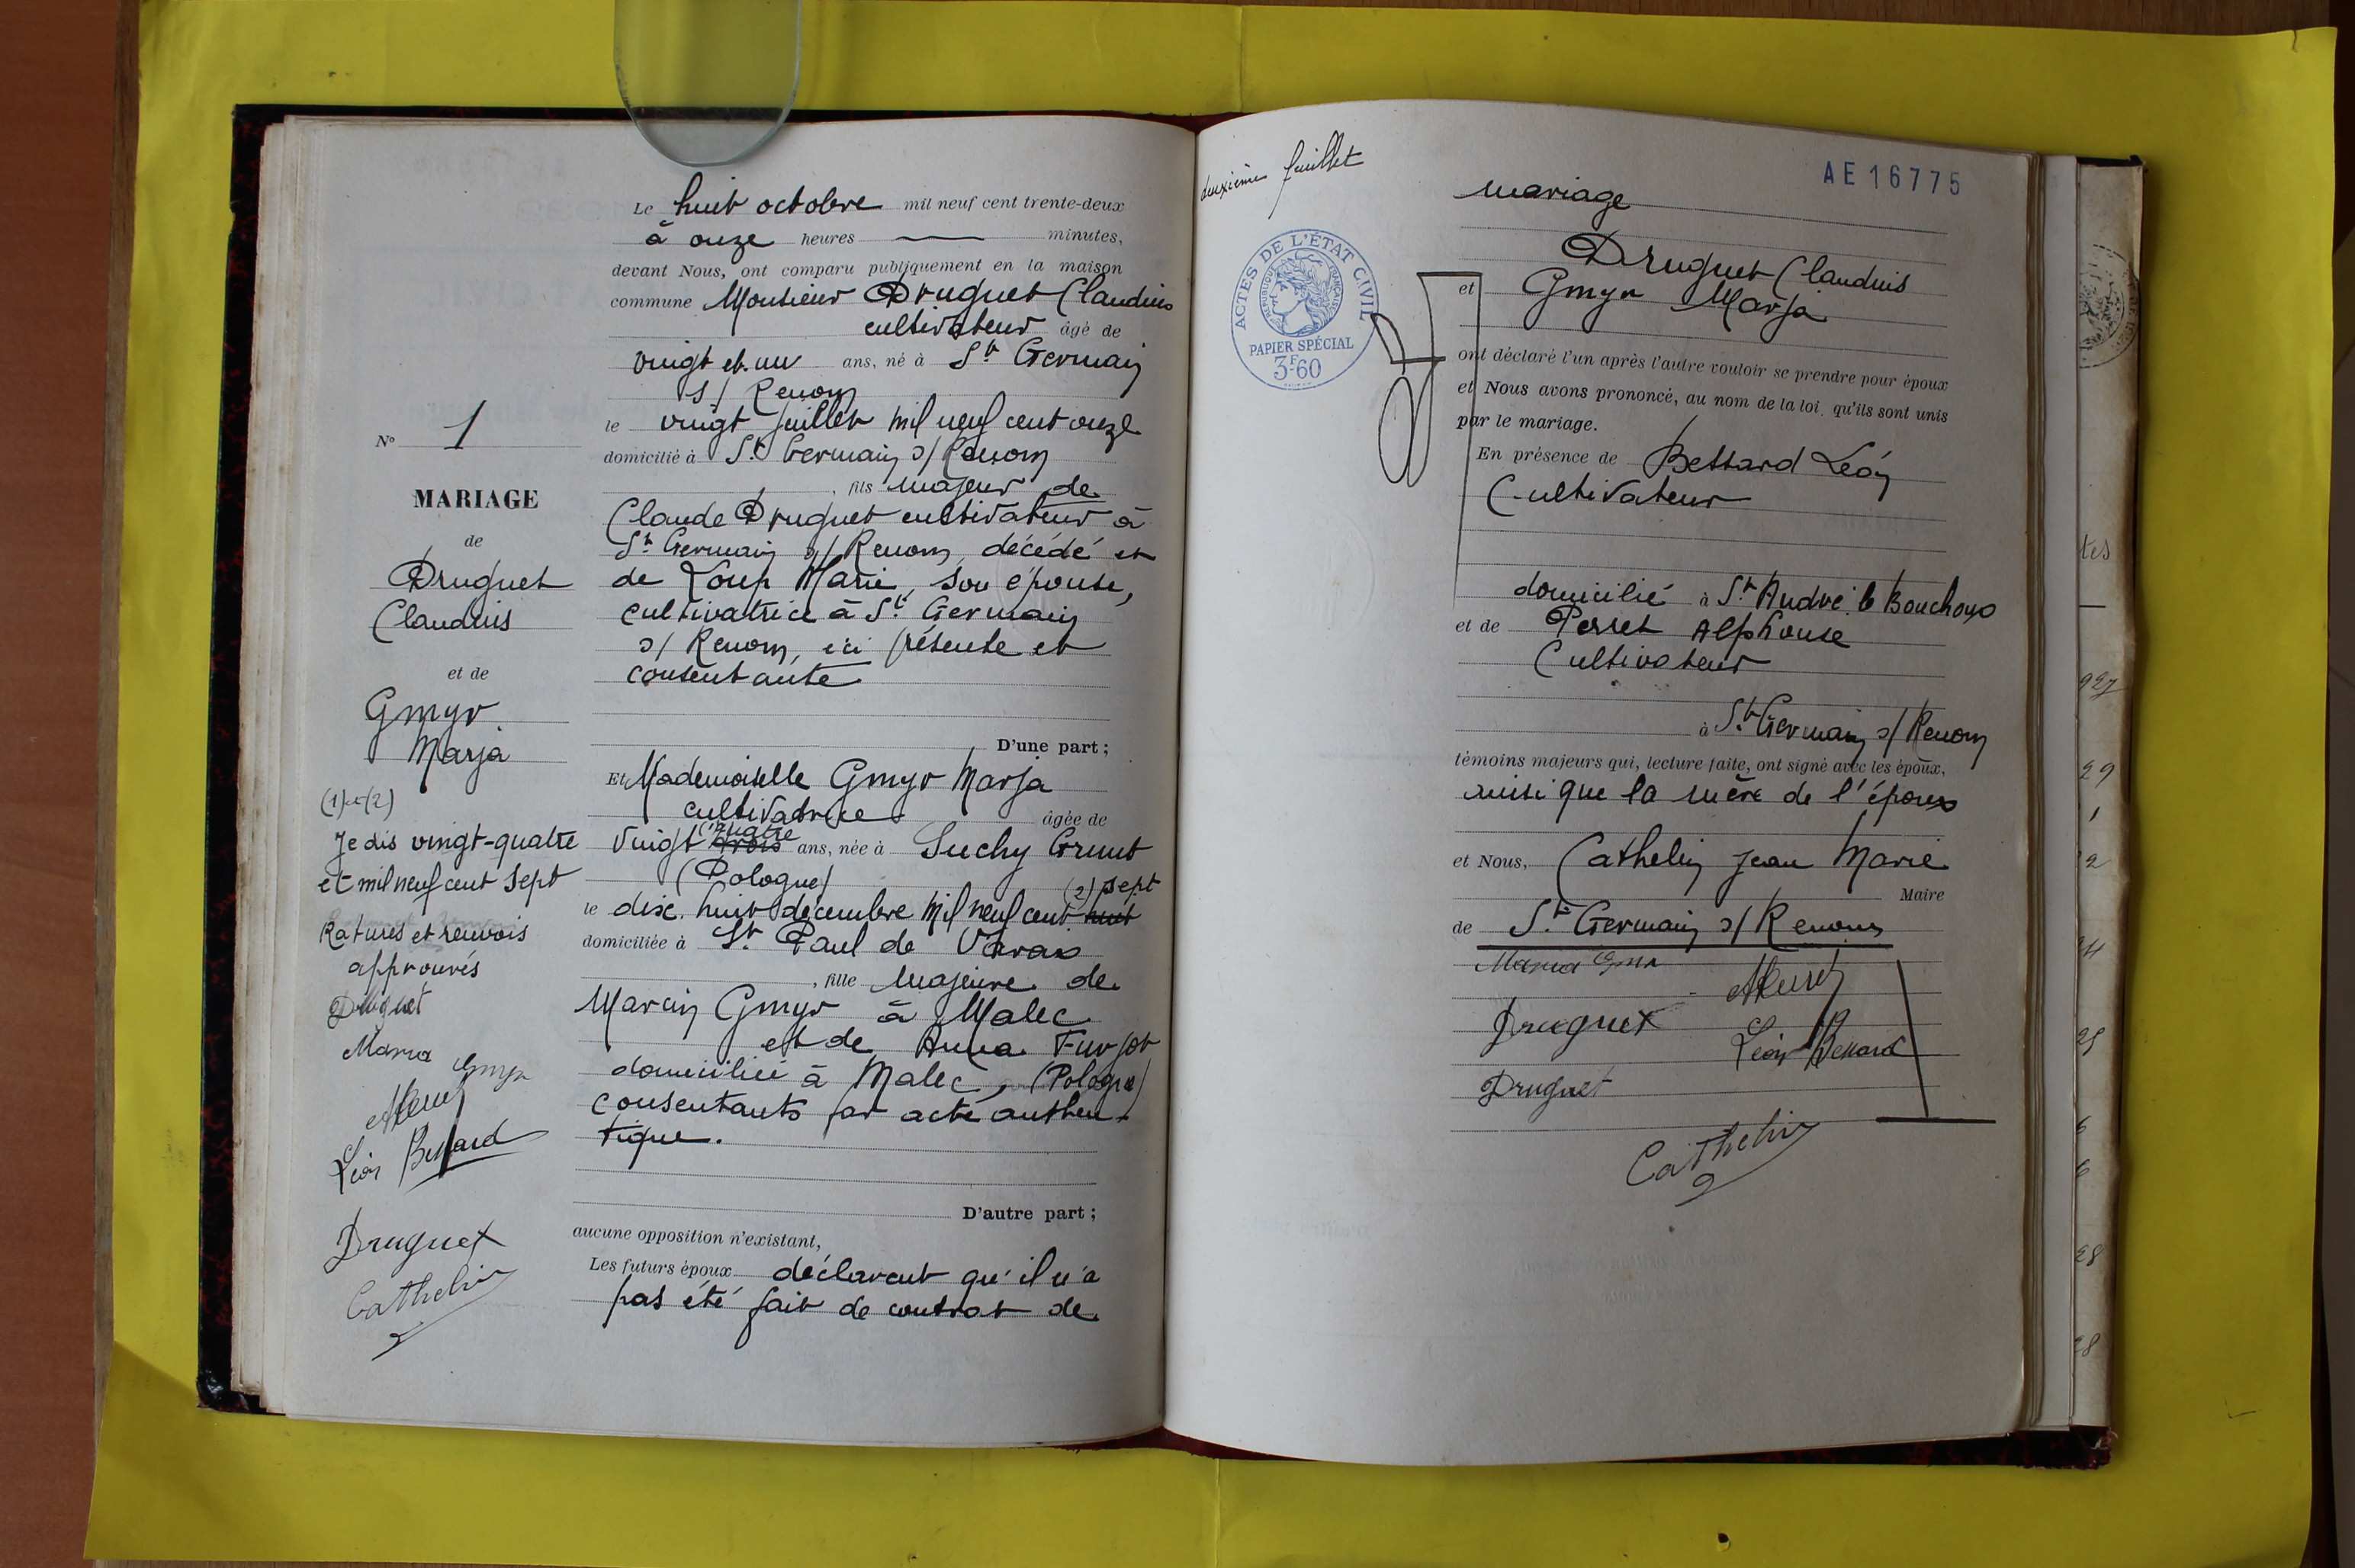 Le huit octobre mil neuf cent trente-deux
à onze heures — minutes,
devant Nous, ont comparu publiquement en la maison
commune Monsieur Druguet Claudius
cultivateur âgé de
vingt et un ans, né à St Germain
s/ Renom
le vingt juillet mil neuf cent onze
domicilié à St Germain s/ Renom
, fils majeur de
Claude Druguet cultivateur à
St Germain s/ Renom, décédé et
de Loup Marie, son épouse,
cultivatrice à St Germain
s/ Renom, ici présente et
consentante
D'une part ;
Et Mademoiselle Gmyr Marja
cultivatrice âgée de
vingt (1) quatre trois ans, née à Suchy Grunt
(Pologne)
(2) sept
le dix huit décembre mil neuf cent huit
domiciliée à St Paul de Varax
, fille majeure de
Marcin Gmyr à Malec
et de Anna Furjot
domiciliée à Malec, (Pologne)
consentants par acte authen-
tique.
D'autre part ;
aucune opposition n'existant,
Les futurs époux déclarent qu'il n'a
pas été fait de contrat de
N° 1
MARIAGE
de
Druguet
Claudius
et de
Gmyr
Marja
(1) et (2)
Je dis vingt-quatre
et mil neuf cent sept
Ratures et renvois
approuvés
Druguet
Maria Gmyr
Léon Bessard
Druguet
Cathelin
deuxième feuillet
ACTES DE L'ÉTAT CIVIL
RÉPUBLIQUE FRANÇAISE
PAPIER SPÉCIAL
3F60
AE16775
mariage
Druguet Claudius
et Gmyr Marja
ont déclaré l'un après l'autre vouloir se prendre pour époux
et Nous avons prononcé, au nom de la loi, qu'ils sont unis
par le mariage.
En présence de Bessard Léon
Cultivateur
domicilié à St André le Bouchoux
et de Perret Alphonse
Cultivateur
à St Germain s/ Renom
témoins majeurs qui, lecture faite, ont signé avec les époux,
ainsi que la mère de l'époux
et Nous, Cathelin Jean Marie
Maire
de St Germain s/ Renom
Maria Gmyr
Druguet
Léon Bessard
Druguet
Cathelin
tes
927
29
1
2
25
6
6
28
28